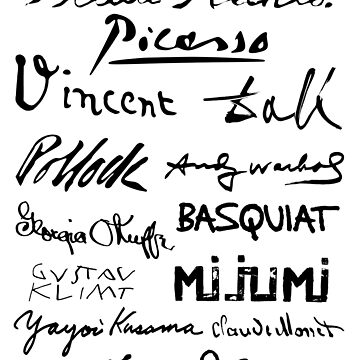 Picasso
Vincent Dalí
Pollock Andy Warhol
Georgia O'Keeffe BASQUIAT
GUSTAV
KLIMT mijumi
Yayoi Kusama Claude Monet